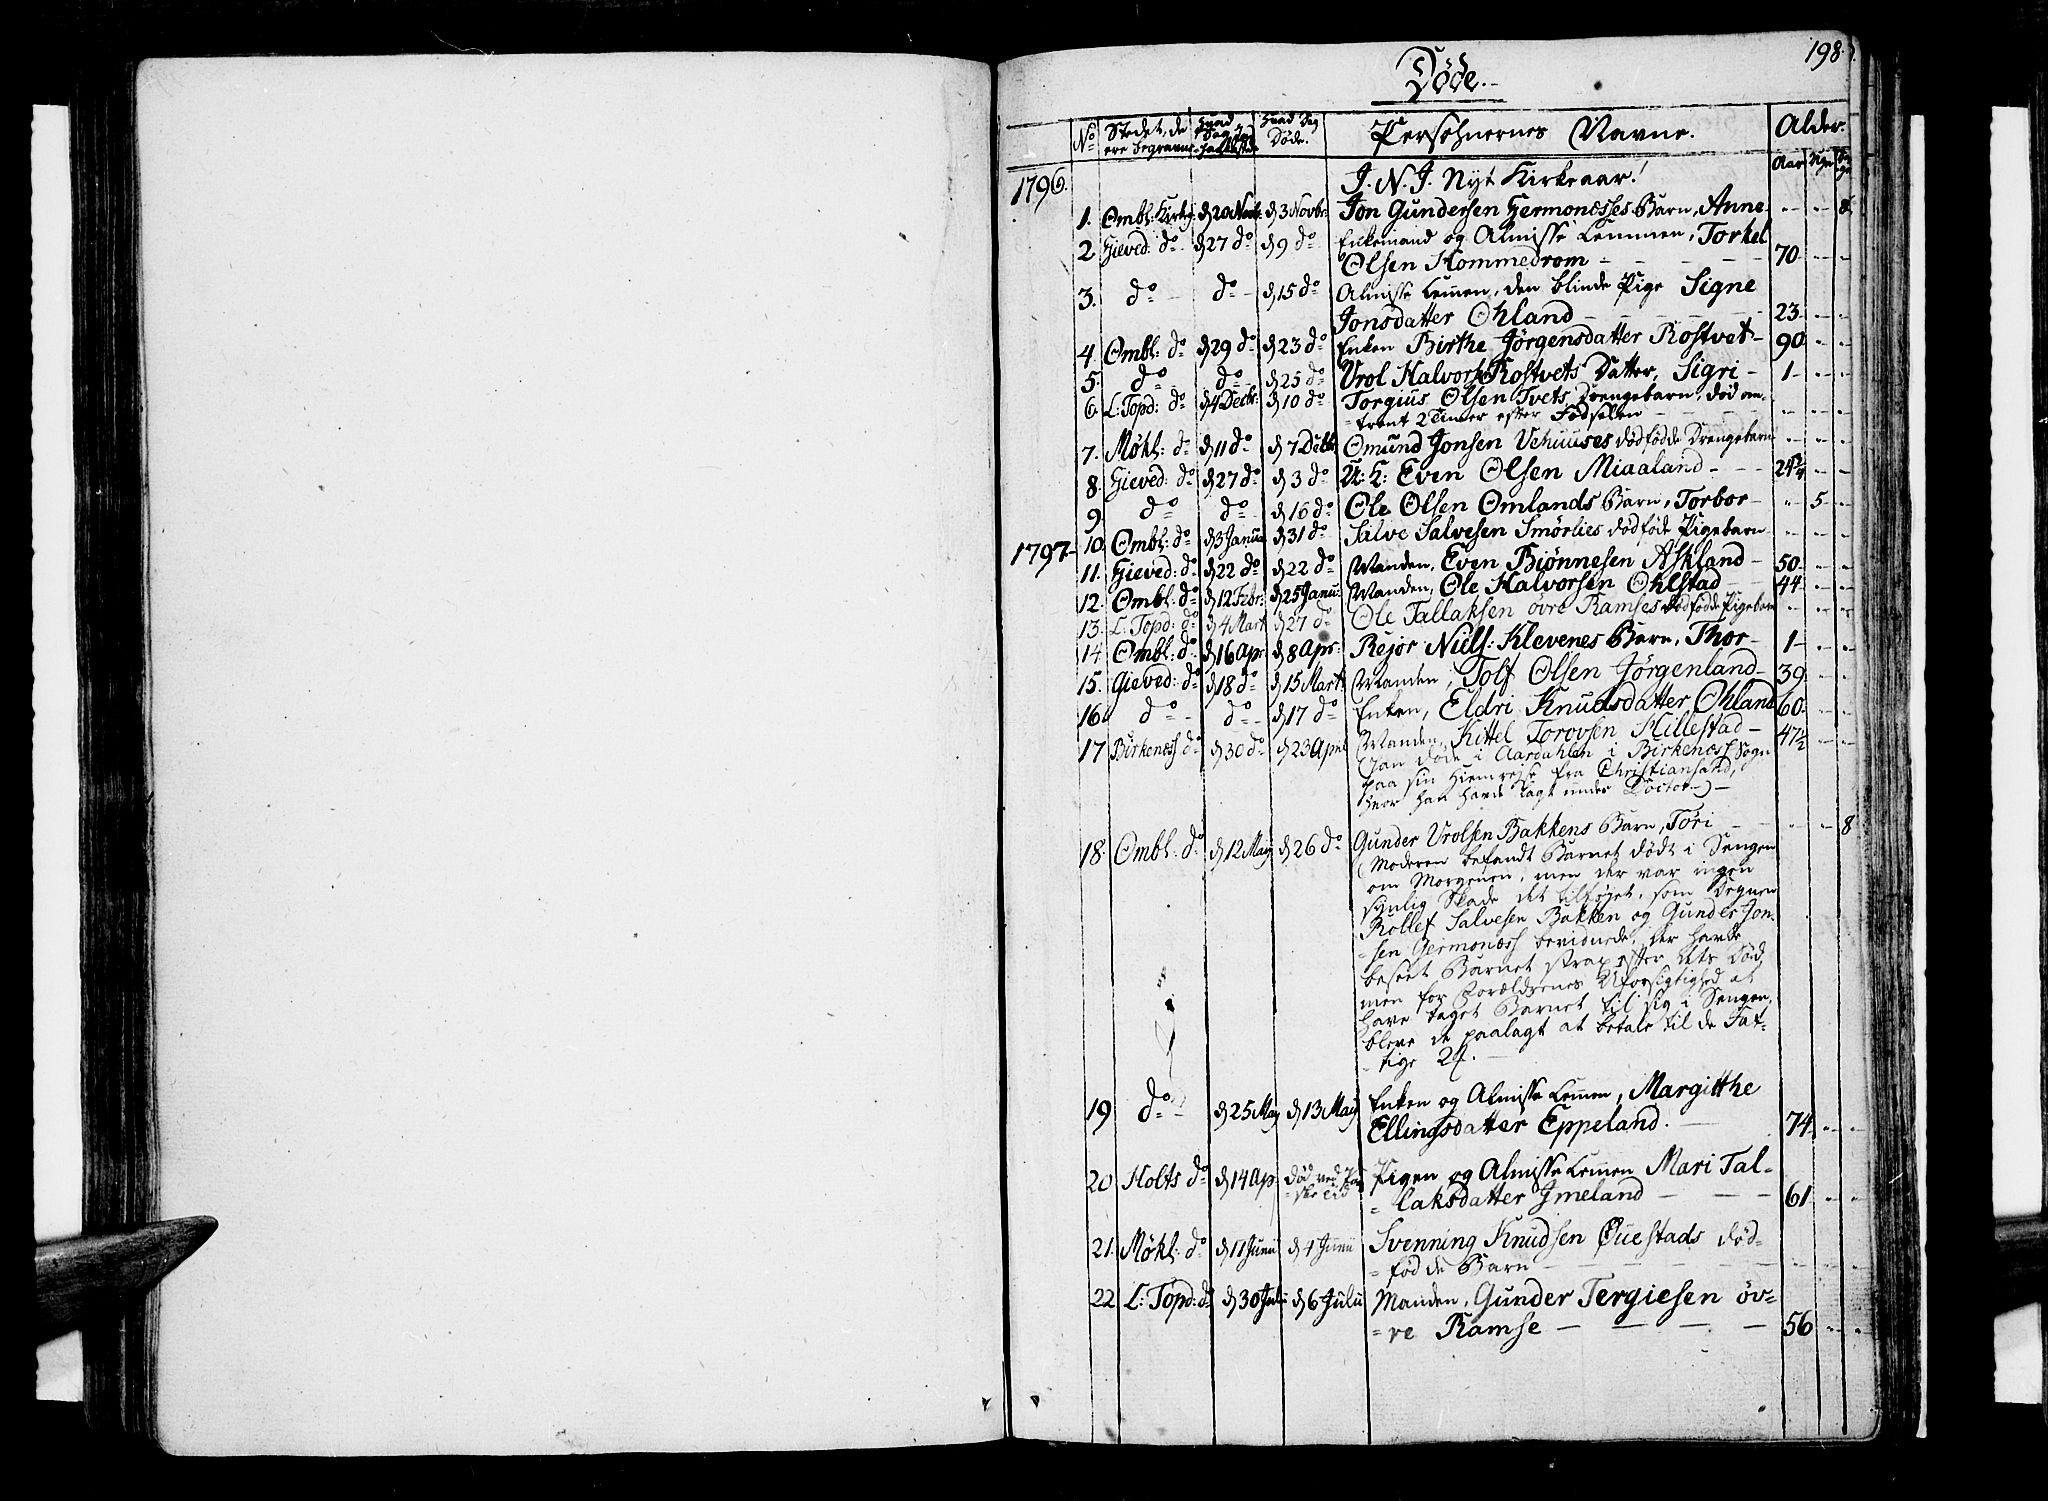 198.
Døde.
No Stedet, de ere begravne Hvad Dag Død Personernes Navne. Alder.
Aar Uger
1796. J. N. J. Nyt Kirkeaar!
1. Ombl: Kirkeg: d 20 Novbr: d 3 Novbr: Jon Gundersen Hermonæsses Barn, Anne - 8
2 Gieved: do d 27 do d 9 do Enkemand og Almisse Lemmen, Torkel
Olsen Hommedrom 70
3. do do d 15 do Almisse Lemen, den blinde Pige Signe
Jonsdatter Ohland 23
4. Ombl: do d 29 do d 23 do Enken Birthe Jørgensdatter Rostvet 90
5. do do d 25 do Urol Halvors: Rostvets Datter, Sigri 1
6. L: Topd: do d 4 Decbr: d 10 do Torgius Olsen Tvets Drengebarn, død om-
trent 2 Timer efter Fødselen
7. Møkl: do d 11 do d 7 Decbr Omund Jonsen Vehuuses dødfødde Drengebarn
8. Gieved: do d 27 do d 3 do U: K: Even Olsen Miaaland 24
9. do do d 16 do Ole Olsen Omlands Barn, Torbor 5
1797 10. Ombl: do d 3 Janua: d 31 do Salve Salvesen Smørlies dødføde Pigebarn
11. Gieved: do d 22 do d 22 do Manden, Even Biønnesen Askland 50
12. Ombl: do d 12 Febr: d 25 Janu: Manden, Ole Halvorsen Ohlstad 44
13. L: Topd: do d 4 Mart d 27 do Ole Tallaksen øvre Ramses dødfødde Pigebarn
14 Ombl: do d 16 Apr d 8 Apr: Rejor Niels: Klevenes Barn, Thor 1
15. Gieved: do d 18 do d 15 Mart: Manden, Tolf Olsen Jørgenland 39
16. do do d 17 do Enken, Eldri Knudsdatter Ohland 60
17 Birkenæss do d 30 do d 23 April Manden, Kittel Torovsen Hillestad 47½
(han døde i Aardahlen i Birkenæss Sogn
paa sin Hiemrejse fra Christiansand,
hvor han havde lagt under Doctor)
18. Ombl: do d 12 May d 26 do Gunder Urolsen Bakkens Barn, Tori 8
(Moderen befandt Barnet dødt i Sengen
om Morgenen, men der var ingen
synlig Skade det tilføjet, som Degnen
Rollef Salvesen Bakken og Gunder Jon-
sen Hermonæss bevidnede, der havde
beseet Barnet strax efter dets Død,
men for Forældrenes Uforsigtighed at
have taget Barnet til sig i Sengen,
bleve de paalagt at betale til de Fat-
tige
19 do d 25 May d 13 May Enken og Almisse Lemen, Margitthe
Ellingsdatter Eppeland. 74
20 Holts do d 14 Ap død ved Paa-
ske Tid Pigen og Almisse Lemen Mari Tal-
laksdatter Imeland 61
21. Møkl: do d 11 Junii d 4 Junii Svenning Knudsen Øuestads død-
fødde Barn
22 L: Topd: do d 30 Juli d 6 Julii Manden, Gunder Tergiesen øv-
re Ramse 56